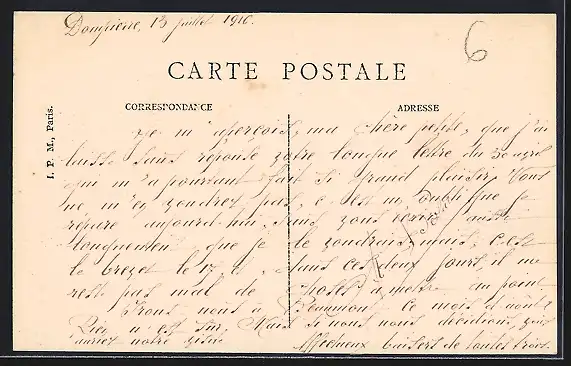 Dompierre, 13 juillet 1916.
6
CARTE POSTALE
CORRESPONDANCE
ADRESSE
I. P. M., Paris.
Je m'aperçois, ma chère petite, que j'ai
laissé sans réponse votre longue lettre du 30 avril
qui m'a pourtant fait si grand plaisir. Vous
ne m'en voudrez pas, c'est un oubli que je
répare aujourd'hui, sans vous écrire aussi
longuement que je le voudrais mais, c'est
le brevet le 17, et dans ces deux jours, il me
reste pas mal de choses à mettre au point
Irons nous à Beaumont ce mois d'août?
Rien n'est sûr. Mais si nous nous décidions, vous
auriez notre visite. Affectueux baisers de toutes trois.